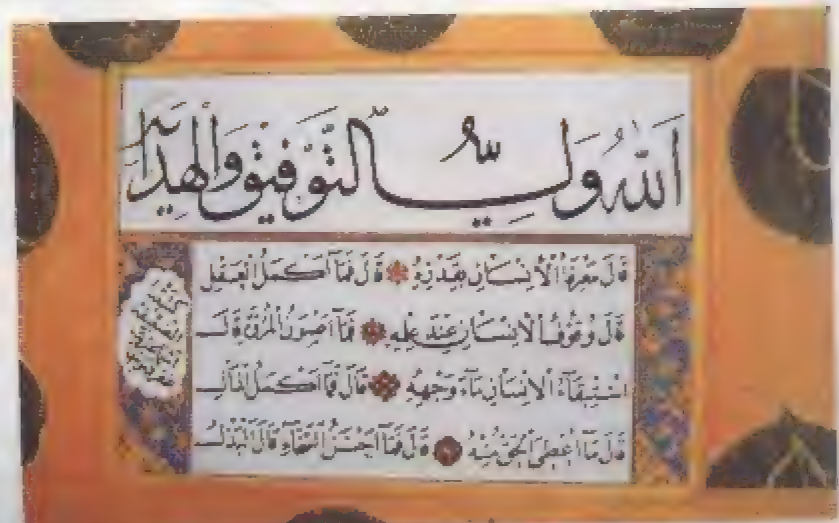 الله ولي التوفيق والهداية
قال معرفة الإنسان بقدره قال فما أكمل العقل
قال وقوف الإنسان عند علمه فما أصون المروة قال
استبقاء الإنسان ماء وجهه قال فما أكمل المال
قال ما أعطي الحق منه قال فما أحسن السخاء قال البذل